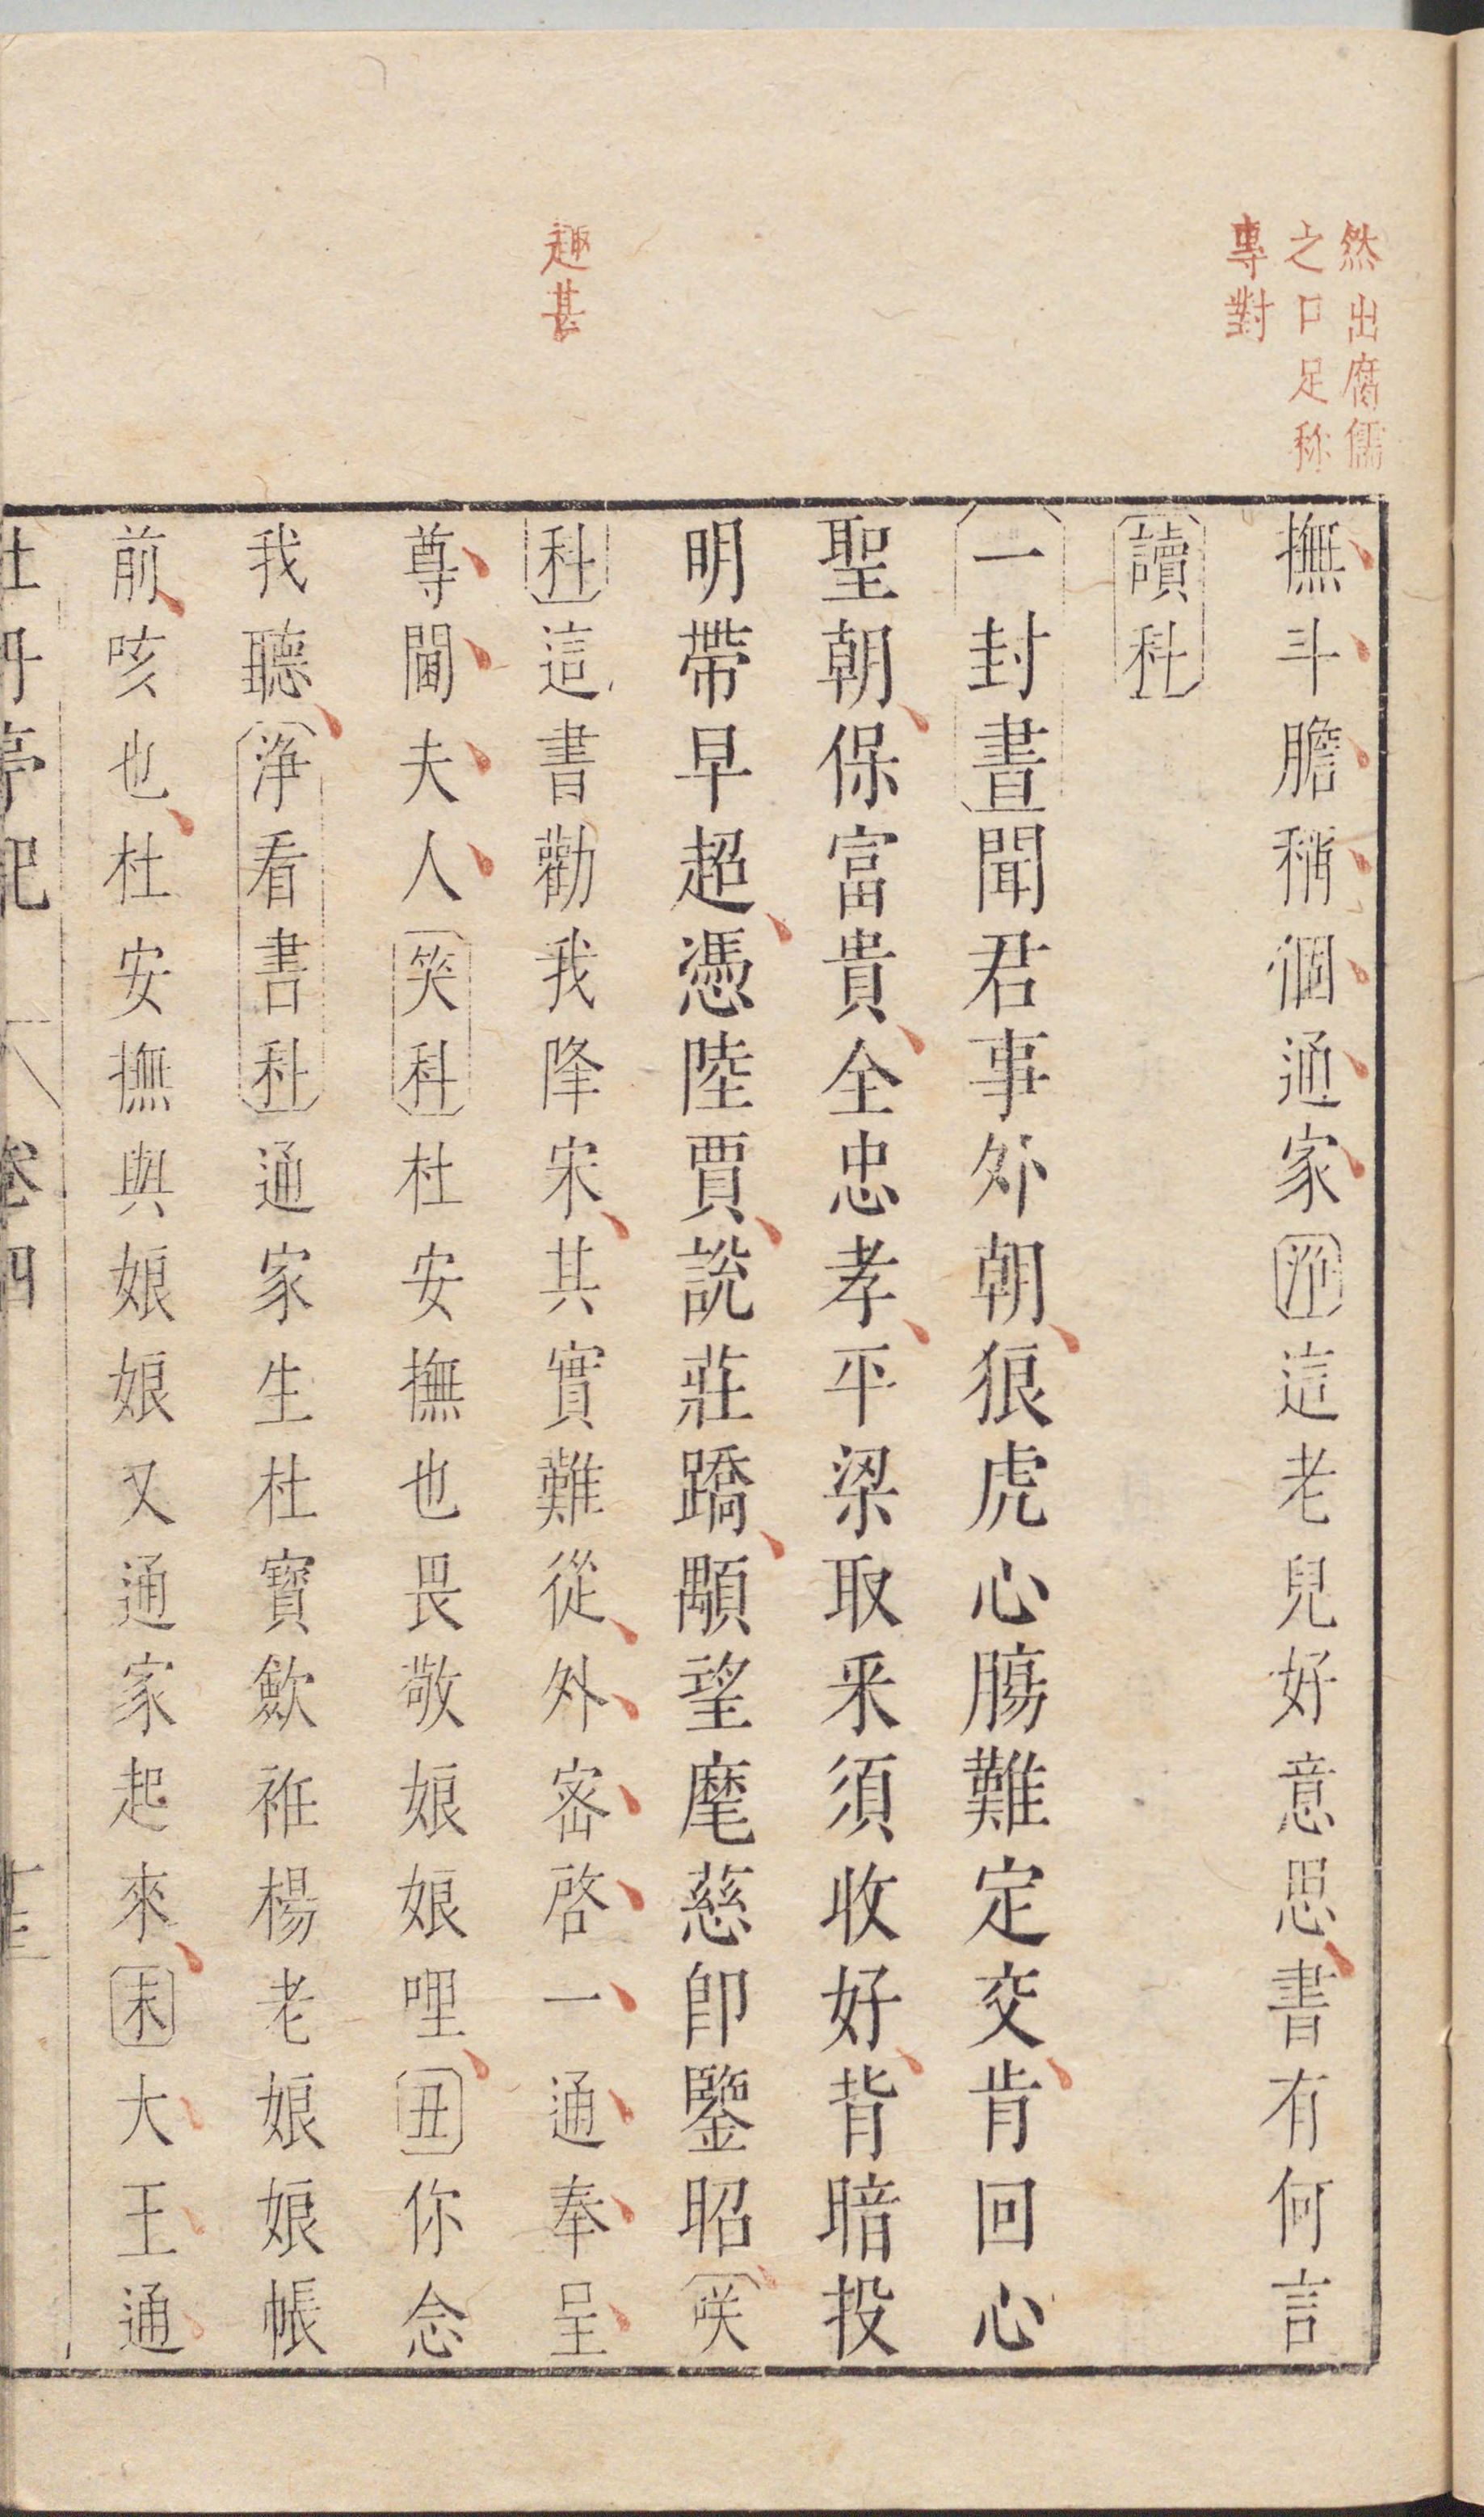 然出腐儒
之口足称
專對
趣甚
撫斗膽稱個通家淨這老兒好意思書有何言
讀科
一封書聞君事外朝狠虎心腸難定交肯回心
聖朝保富貴全忠孝平梁取采須收好背暗投
明帶早超憑陸賈說莊蹻顒望麾慈即鑒昭咲
科這書勸我降宋其實難從外密啓一通奉呈
尊閫夫人笑科杜安撫也畏敬娘娘哩丑你念
我聽淨看書科通家生杜寶歛袵楊老娘娘帳
前咳也杜安撫與娘娘又通家起來末大王通
牡丹亭記 卷四